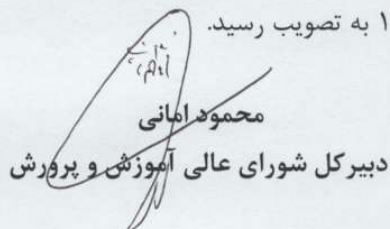 ۱ به تصویب رسید.
محمود امانی
دبیرکل شورای عالی آموزش و پرورش